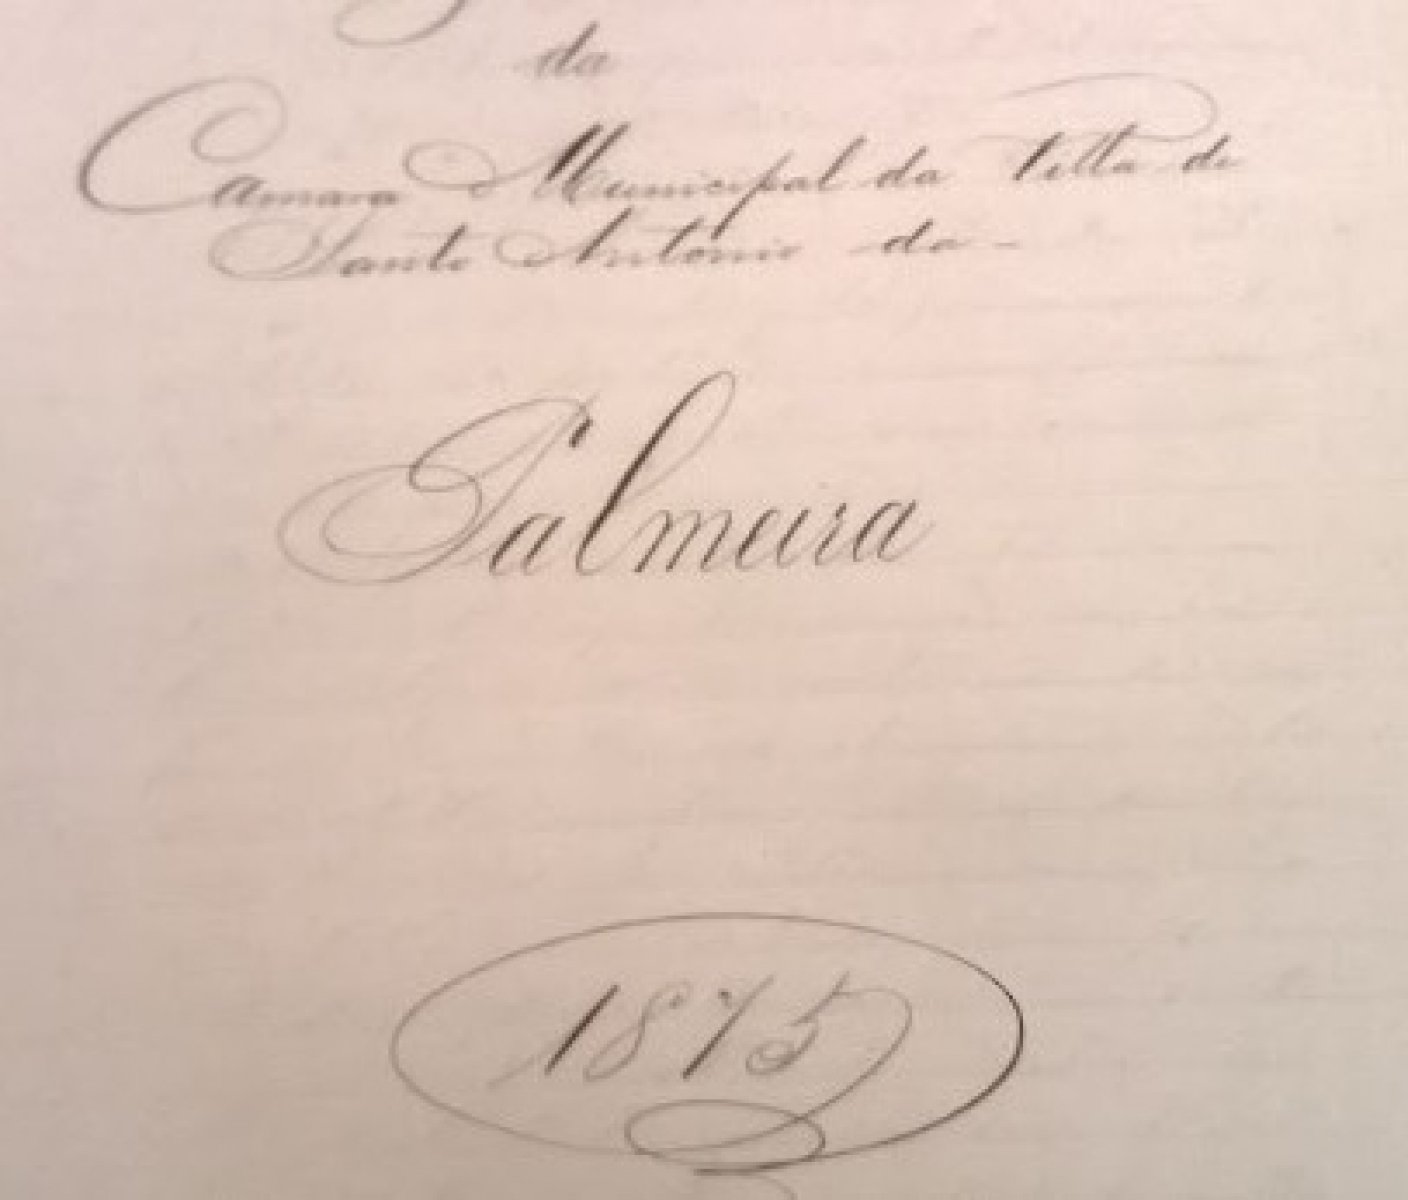 da
Camara Municipal da Villa de
Santo Antonio da -
Palmeira
1875